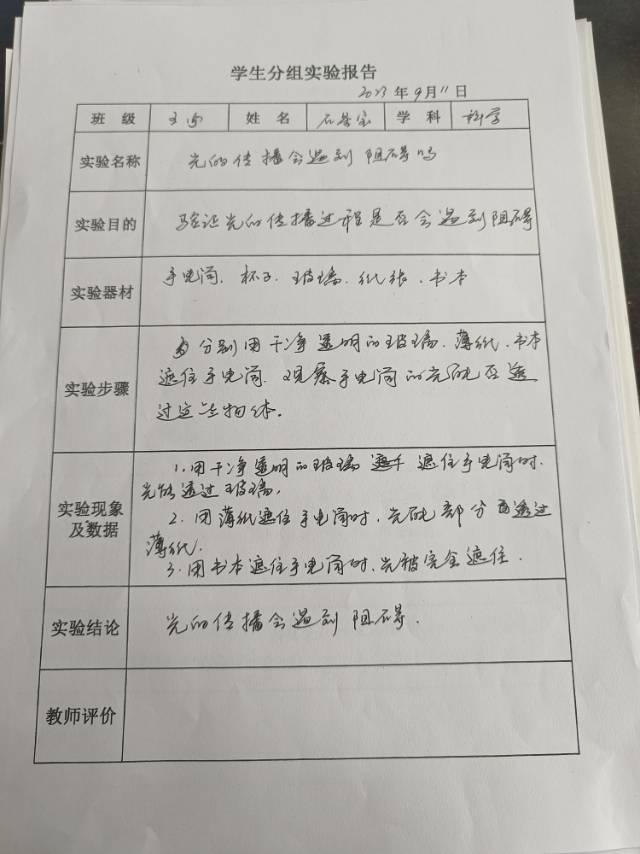 学生分组实验报告
2023年9月11日
班 级 姓 名 学 科 科学
实验名称 光的传播会遇到阻碍吗
实验目的 验证光的传播过程是否会遇到阻碍
实验器材 手电筒、杯子、玻璃、纸张、书本
实验步骤
分别用干净透明的玻璃、薄纸、书本
遮住手电筒,观察手电筒的光能否透
过这些物体。
实验现象及数据
1.用干净透明的玻璃 遮住手电筒时,
光能透过玻璃,
2.用薄纸遮住手电筒时,光能部分透过
薄纸.
3.用书本遮住手电筒时,光被完全遮住.
实验结论 光的传播会遇到阻碍.
教师评价